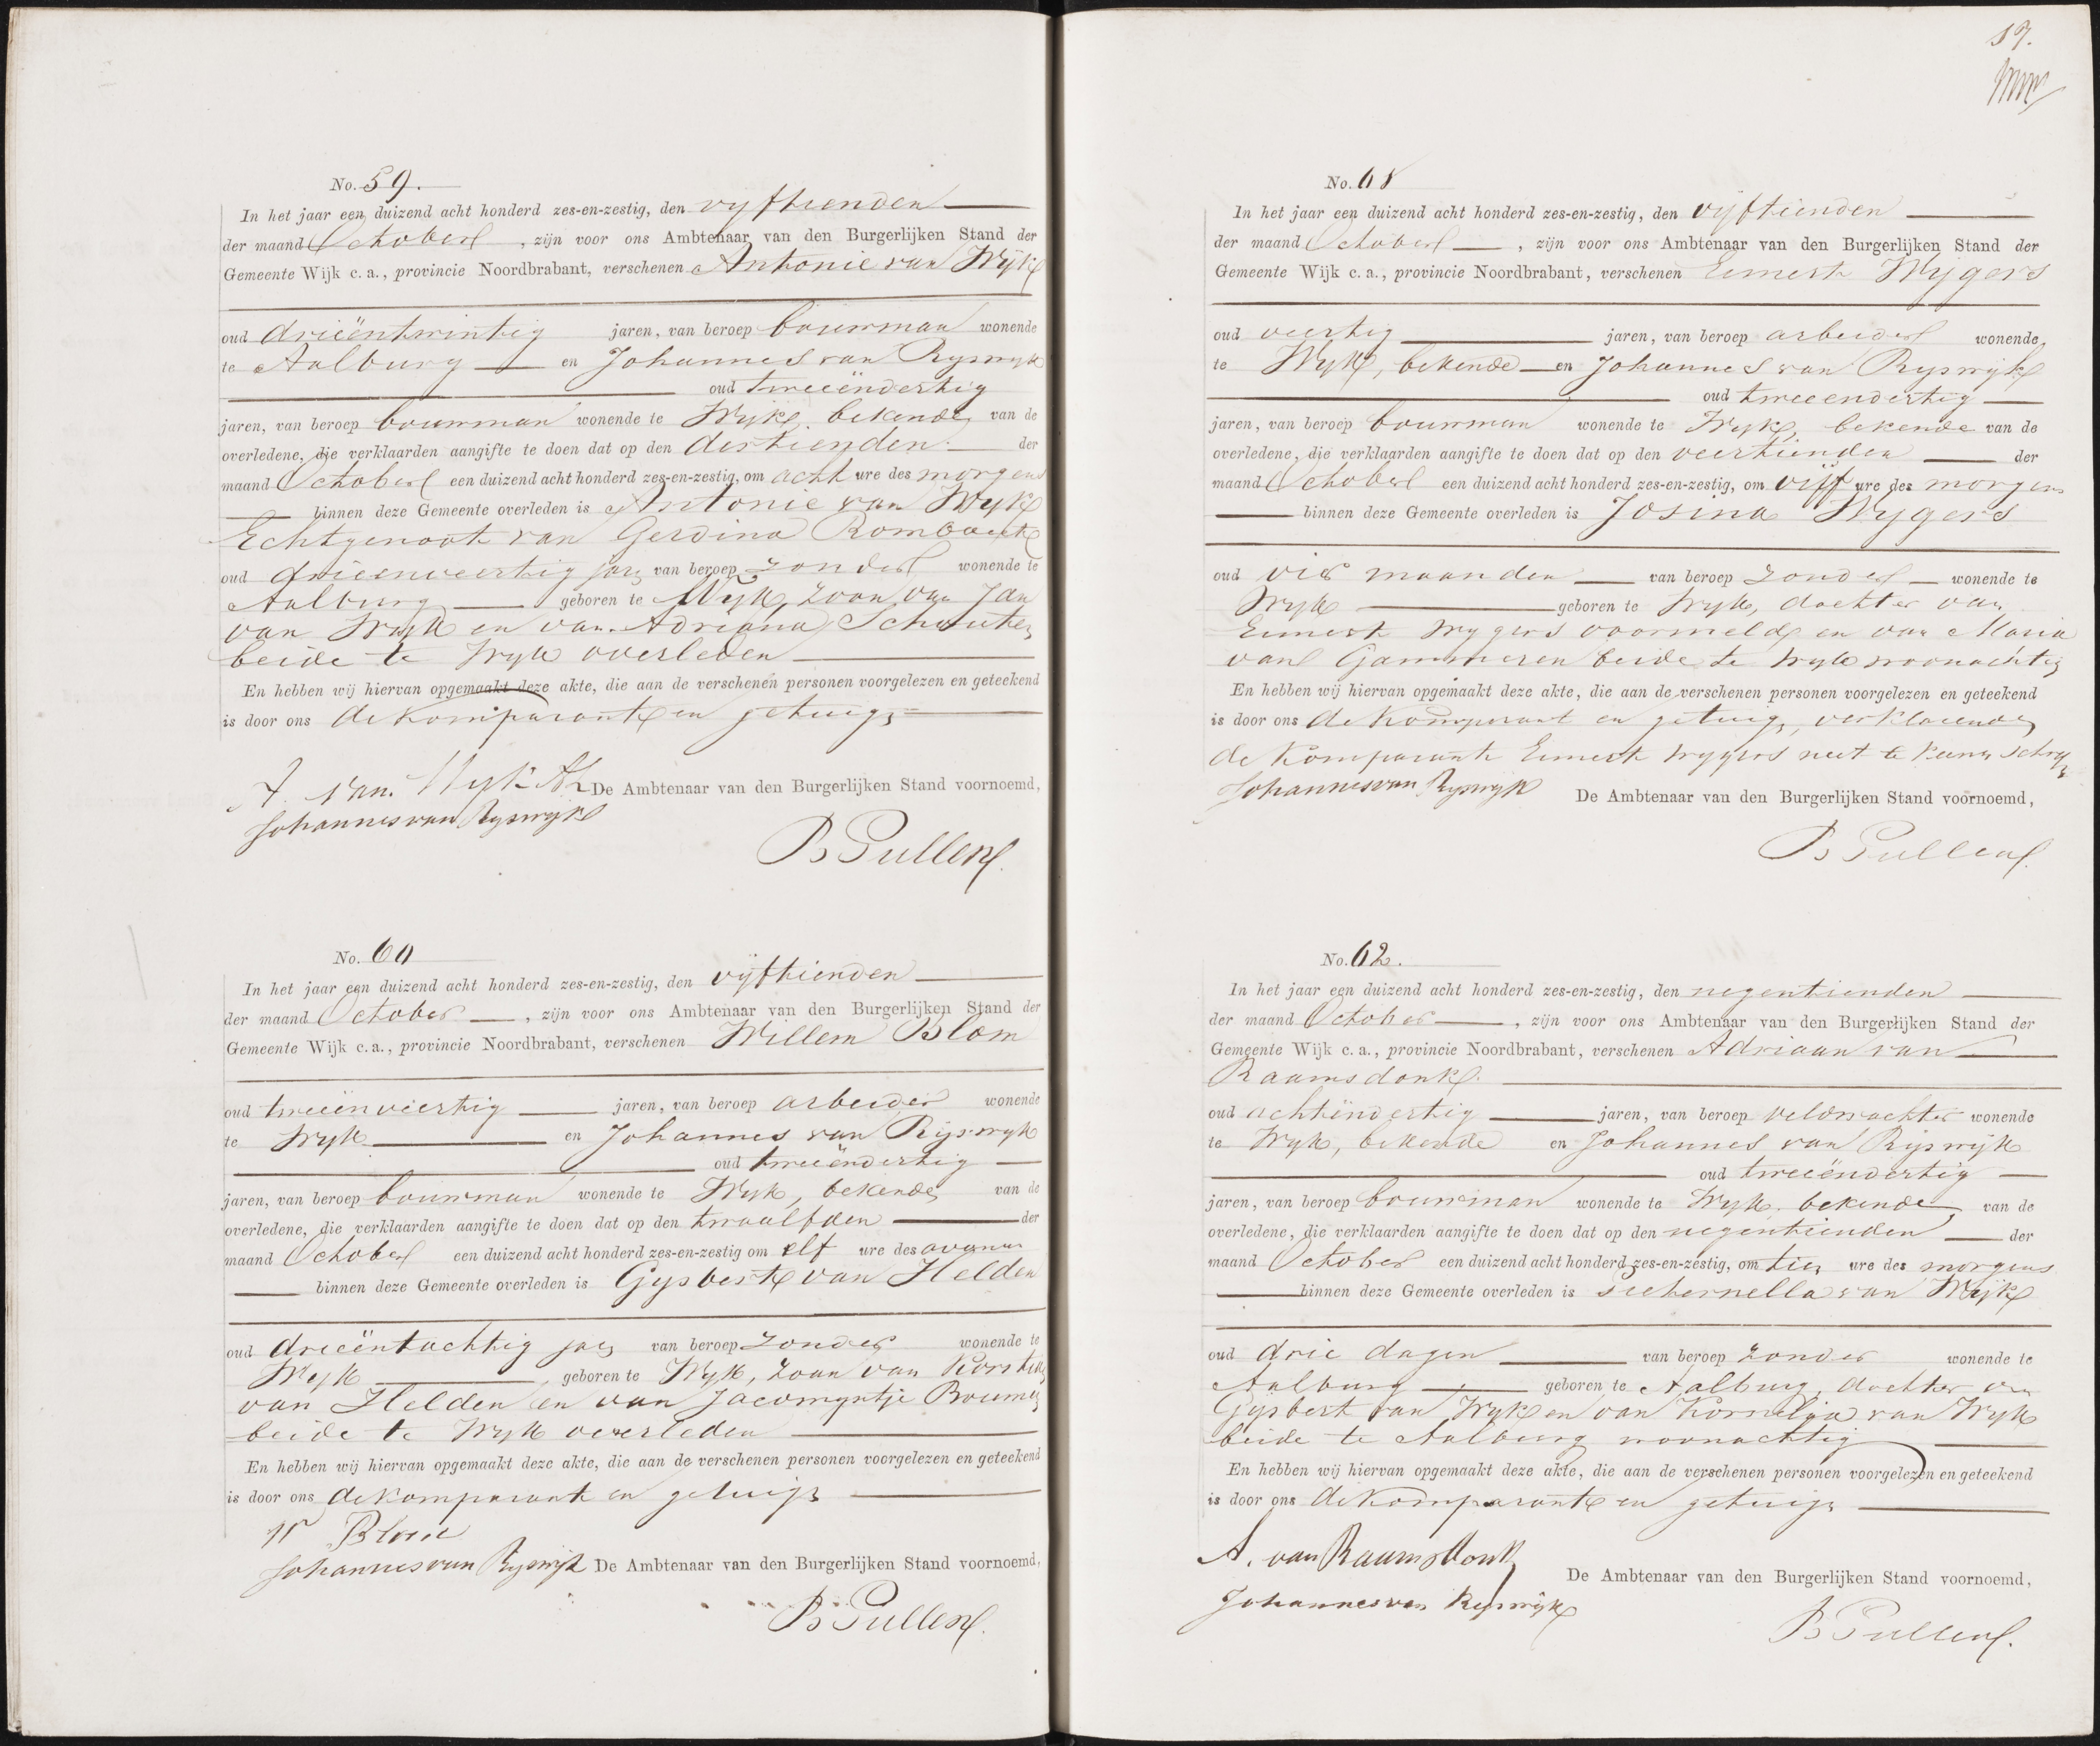 No. 59.
In het jaar een duizend acht honderd zes-en-zestig, den vyftienden
der maand October, zijn voor ons Ambtenaar van den Burgerlijken Stand der
Gemeente Wijk c. a., provincie Noordbrabant, verschenen Antonie van Wijk
oud drieëntwintig jaren, van beroep bouwman wonende
te Aalburg en Johannes van Ryswyk
oud tweeëndertig
jaren, van beroep bouwman wonende te Wyk, bekende van de
overledene, die verklaarden aangifte te doen dat op den dertienden der
maand October een duizend acht honderd zes-en-zestig, om acht ure des morgens
binnen deze Gemeente overleden is Antonie van Wyk
Echtgenoot van Gerdina Rombout
oud drieenveertig jaar van beroep zonder wonende te
Aalburg geboren te Wyk, zoon van Jan
van Wyk en van Adriana Schouten
beide te Wyk overleden
En hebben wij hiervan opgemaakt deze akte, die aan de verschenen personen voorgelezen en geteekend
is door ons de komparant en getuige
A. van Wyk De Ambtenaar van den Burgerlijken Stand voornoemd,
Johannes van Ryswyk
B Pullen
No. 60
In het jaar een duizend acht honderd zes-en-zestig, den vijftienden
der maand October, zijn voor ons Ambtenaar van den Burgerlijken Stand der
Gemeente Wijk c. a., provincie Noordbrabant, verschenen Willem Blom
oud tweeënveertig jaren, van beroep arbeider wonende
te Wyk en Johannes van Rijswyk
oud tweeëndertig
jaren, van beroep bouwman wonende te Wyk, bekende van de
overledene, die verklaarden aangifte te doen dat op den twaalfden der
maand October een duizend acht honderd zes-en-zestig om elf ure des avonds
binnen deze Gemeente overleden is Gysbert van Helden
oud drieëntachtig jaar van beroep zonder wonende te
Wyk geboren te Wyk, zoon van
van Helden en van Jacomyntje Bouman
beide te Wyk overleden
En hebben wij hiervan opgemaakt deze akte, die aan de verschenen personen voorgelezen en geteekend
is door ons de komparant en getuige
W Blom
Johannes van Ryswyk De Ambtenaar van den Burgerlijken Stand voornoemd,
B Pullen
No. 61
In het jaar een duizend acht honderd zes-en-zestig, den vijftienden
der maand October, zijn voor ons Ambtenaar van den Burgerlijken Stand der
Gemeente Wijk c. a., provincie Noordbrabant, verschenen Eimert Wijgers
oud veertig jaren, van beroep arbeider wonende
te Wyk, bekende en Johannes van Ryswyk
oud tweeendertig
jaren, van beroep bouwman wonende te Wyk, bekende van de
overledene, die verklaarden aangifte te doen dat op den veertienden der
maand October een duizend acht honderd zes-en-zestig, om vijf ure des morgens
binnen deze Gemeente overleden is Josina Wygers
oud vier maanden van beroep zonder wonende te
Wyk geboren te Wyk, dochter van
Eimert Wygers voormeld en van Maria
van Gammeren beide te Wyk woonachtig
En hebben wij hiervan opgemaakt deze akte, die aan de verschenen personen voorgelezen en geteekend
is door ons de komparant en getuige, verklarende
de komparant Eimert Wygers niet te kunnen schryven
Johannes van Ryswyk De Ambtenaar van den Burgerlijken Stand voornoemd,
B Pullen
No. 62.
In het jaar een duizend acht honderd zes-en-zestig, den negentienden
der maand October, zijn voor ons Ambtenaar van den Burgerlijken Stand der
Gemeente Wijk c. a., provincie Noordbrabant, verschenen Adriaan van
Raamsdonk
oud achtendertig jaren, van beroep veldwachter wonende
te Wyk, bekende en Johannes van Rijswijk
oud tweeëndertig
jaren, van beroep bouwman wonende te Wyk, bekende van de
overledene, die verklaarden aangifte te doen dat op den negentienden der
maand October een duizend acht honderd zes-en-zestig, om tien ure des morgens
binnen deze Gemeente overleden is van Wijk
oud drie dagen van beroep zonder wonende te
Aalburg geboren te Aalburg, dochter van
Gijsbert van Wyk en van Kornelia van Wyk
beide te Aalburg woonachtig
En hebben wij hiervan opgemaakt deze akte, die aan de verschenen personen voorgelezen en geteekend
is door ons de komparant en getuige
A. van Raamsdonk
De Ambtenaar van den Burgerlijken Stand voornoemd,
Johannes van Ryswyk
B Pullen